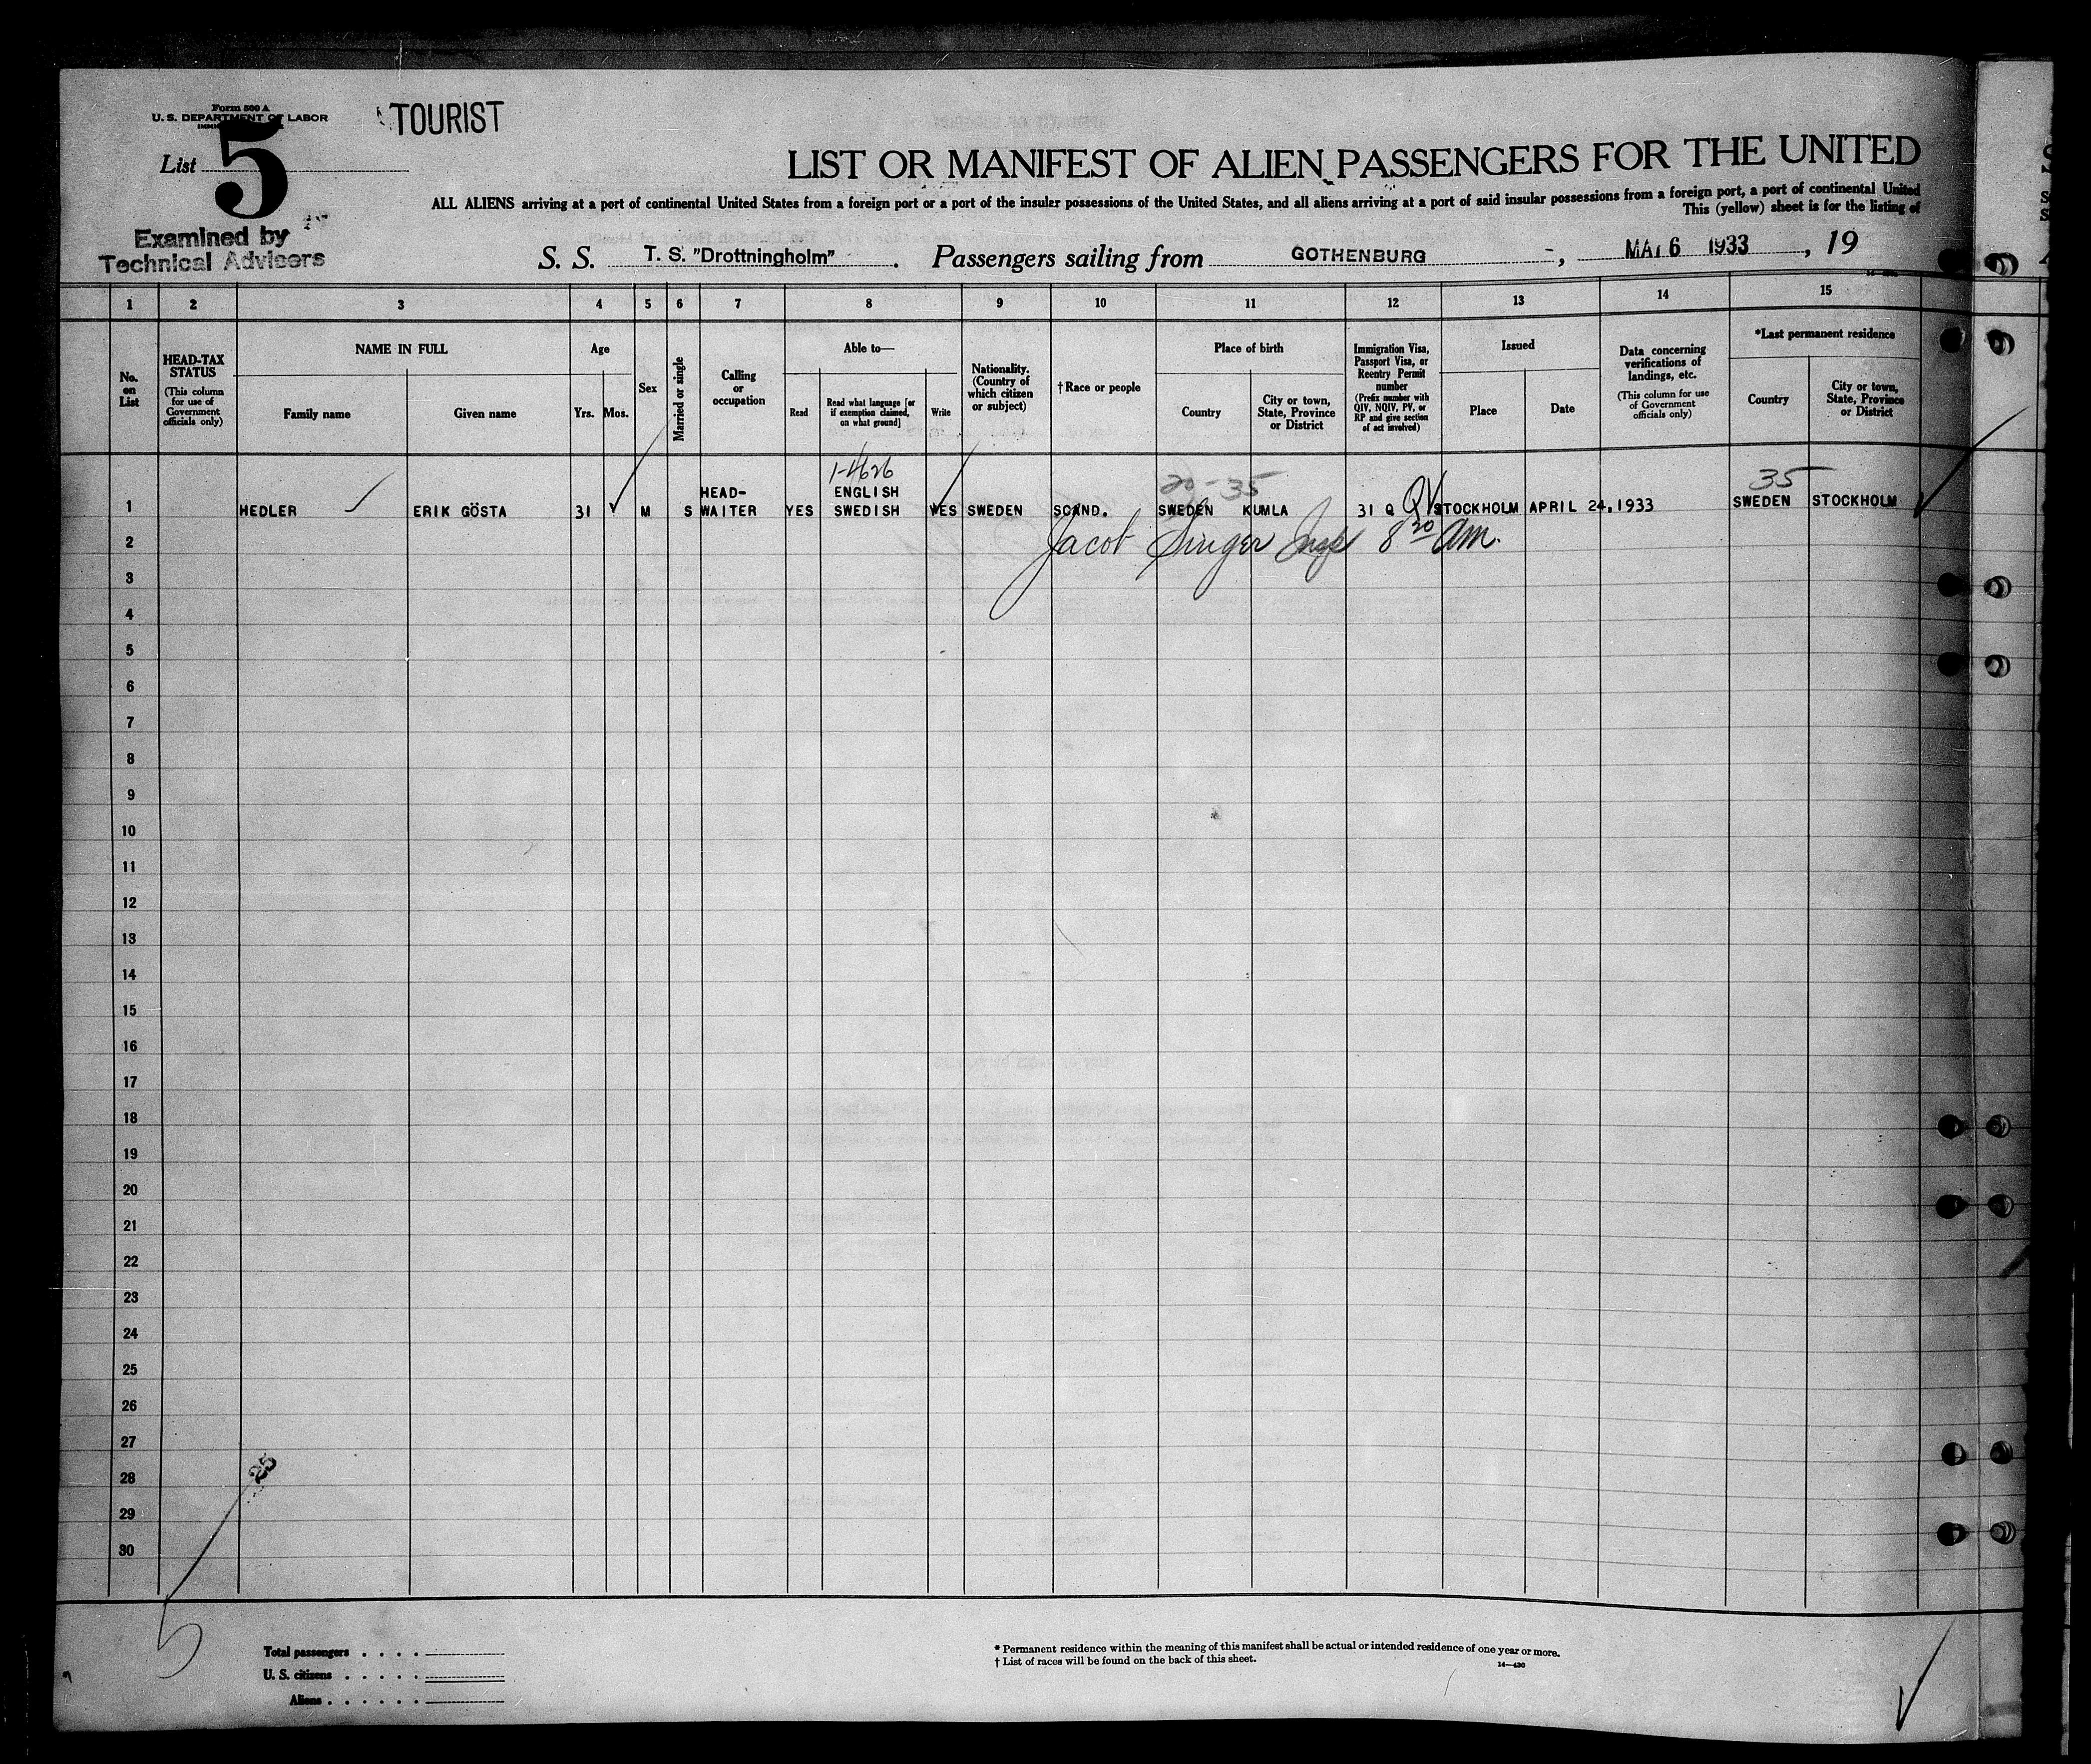 Form 500 A
U. S. DEPARTMENT OF LABOR
TOURIST
List 5
LIST OR MANIFEST OF ALIEN PASSENGERS FOR THE UNITED
ALL ALIENS arriving at a port of continental United States from a foreign port or a port of the insular possessions of the United States, and all aliens arriving at a port of said insular possessions from a foreign port, a port of continental United
This (yellow) sheet is for the listing of
Examined by
Technical Advisers
S. S. T. S. "Drottningholm". Passengers sailing from GOTHENBURG, MAY 6 1933, 19
1 2 3 4 5 6 7 8 9 10 11 12 13 14 15
No. on List
HEAD-TAX STATUS
(This column for use of Government officials only)
NAME IN FULL
Family name
Given name
Age
Yrs.
Mos.
Sex
Married or single
Calling or occupation
Able to—
Read
Read what language [or if exemption claimed, on what ground]
Write
Nationality. (Country of which citizen or subject)
†Race or people
Place of birth
Country
City or town, State, Province or District
Immigration Visa, Passport Visa, or Reentry Permit number
(Prefix number with QIV, NQIV, PV, or RP and give section of act involved)
Issued
Place
Date
Data concerning verifications of landings, etc.
(This column for use of Government officials only)
*Last permanent residence
Country
City or town, State, Province or District
1-4626
20-35
35
HEAD- ENGLISH
1 HEDLER ERIK GÖSTA 31 M S WAITER YES SWEDISH YES SWEDEN SCAND. SWEDEN KUMLA 31 Q QV STOCKHOLM APRIL 24,1933 SWEDEN STOCKHOLM
2 Jacob Singer Insp 8 30 am.
3
4
5
6
7
8
9
10
11
12
13
14
15
16
17
18
19
20
21
22
23
24
25
26
27
28
29
30
25
5
Total passengers . . . .
U. S. citizens . . . . .
Aliens . . . . . .
* Permanent residence within the meaning of this manifest shall be actual or intended residence of one year or more.
† List of races will be found on the back of this sheet.
14—430